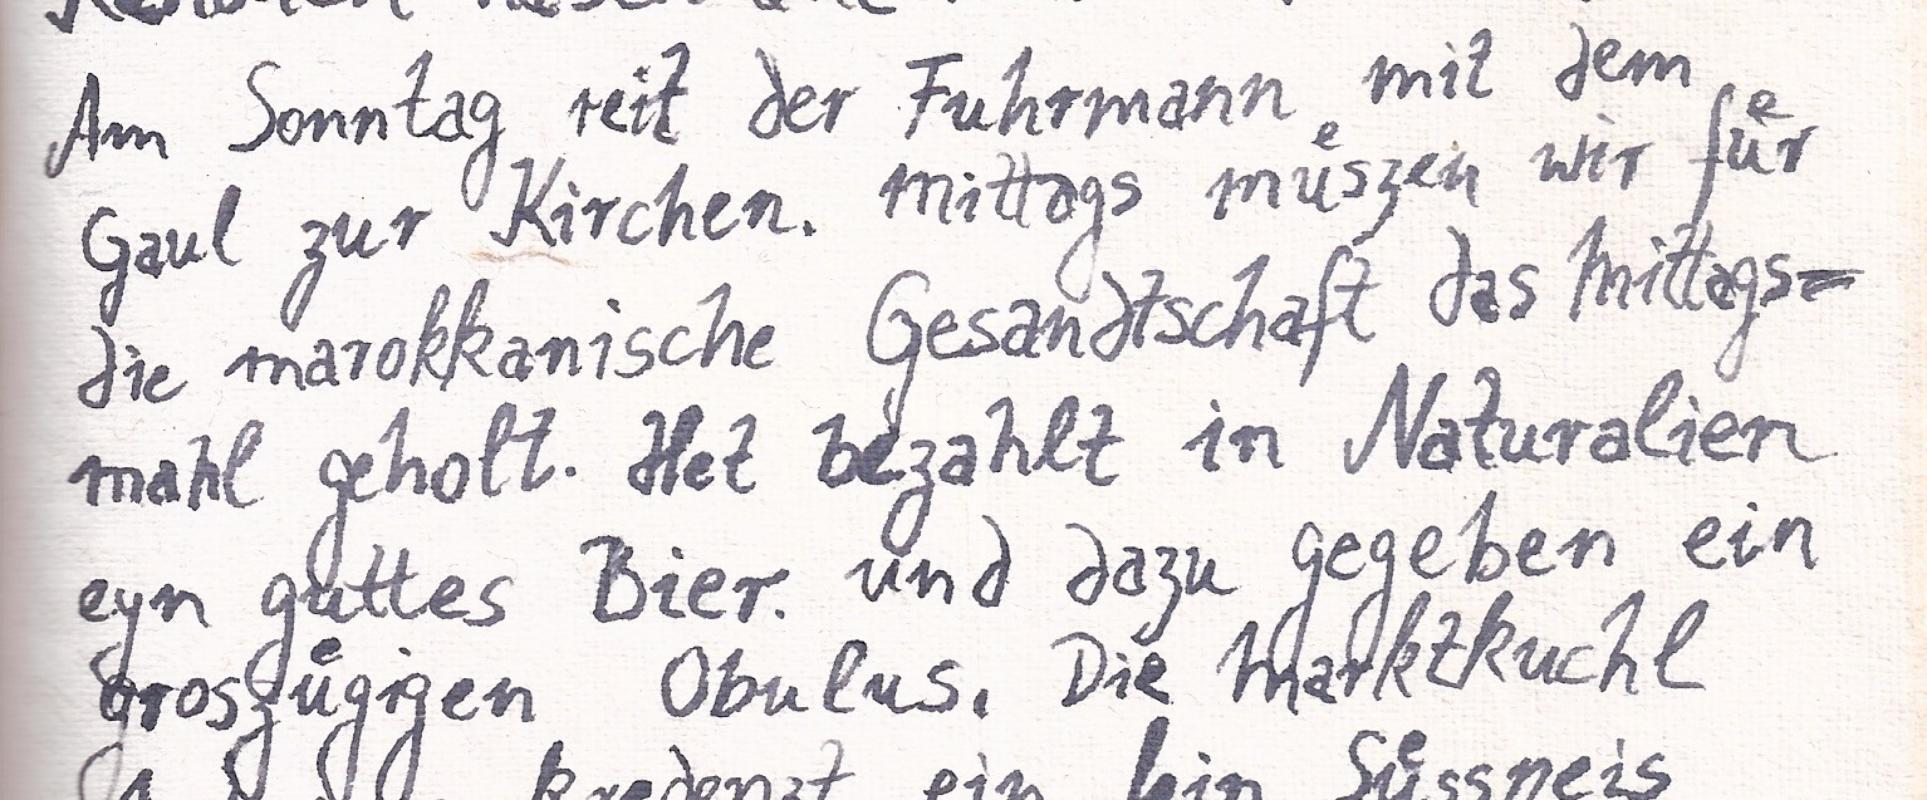 Am Sonntag reit der Fuhrmann mit dem
Gaul zur Kirchen. Mittags muͤszen wir fuͤr
die marokkanische Gesandtschaft das Mittags=
mahl geholt. Het bezahlt in Naturalien
eyn guttes Bier. und dazu gegeben ein
groszuͤgigen Obulus. Die Marktkuchl
kredenzt ein